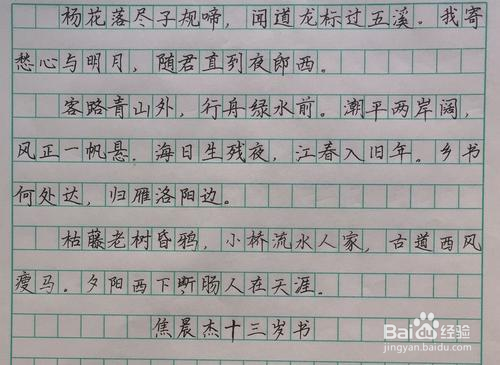 杨花落尽子规啼，闻道龙标过五溪。我寄
愁心与明月，随君直到夜郎西。
客路青山外，行舟绿水前。潮平两岸阔，
风正一帆悬。海日生残夜，江春入旧年。乡书
何处达，归雁洛阳边。
枯藤老树昏鸦，小桥流水人家，古道西风
瘦马。夕阳西下断肠人在天涯。
焦晨杰十三岁书
Baidu经验
jingyan.baidu.com